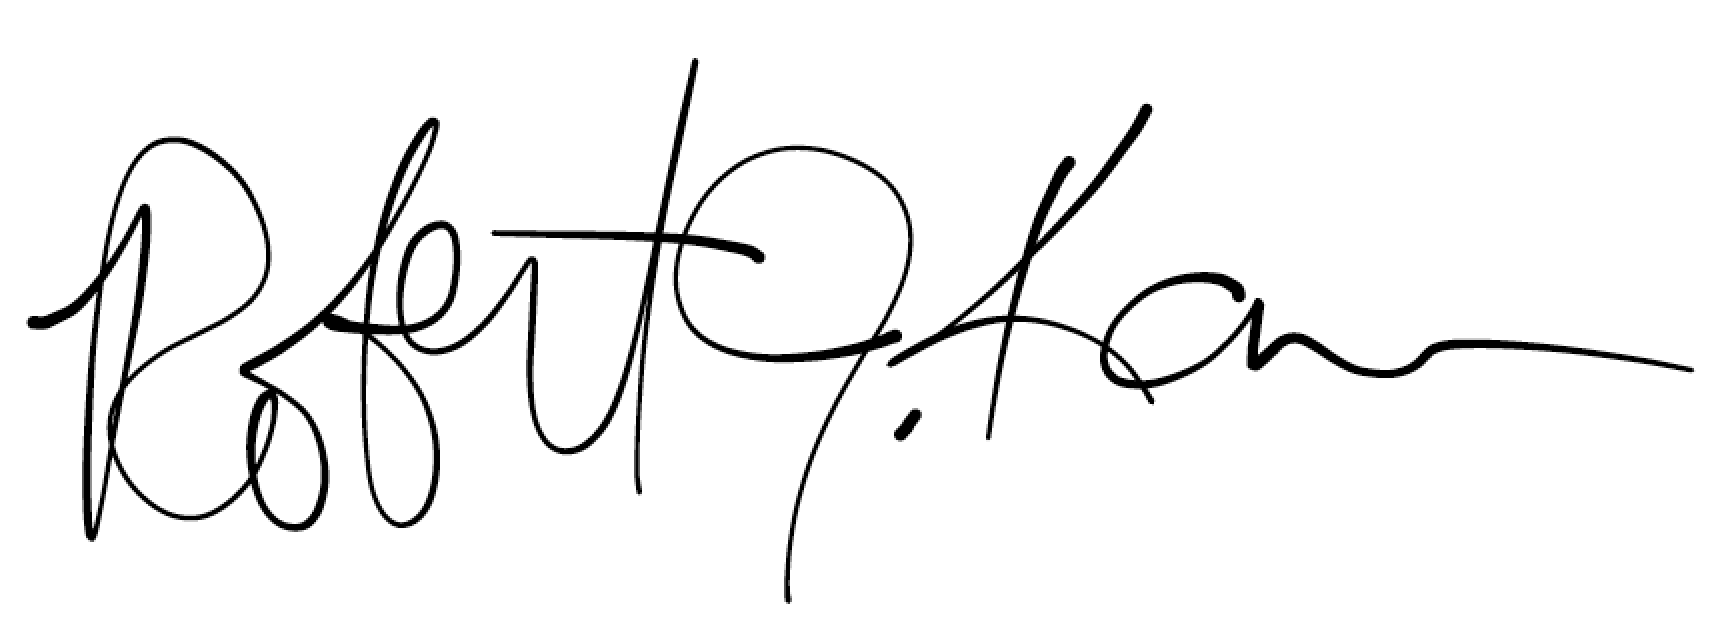 Robert J. Kan